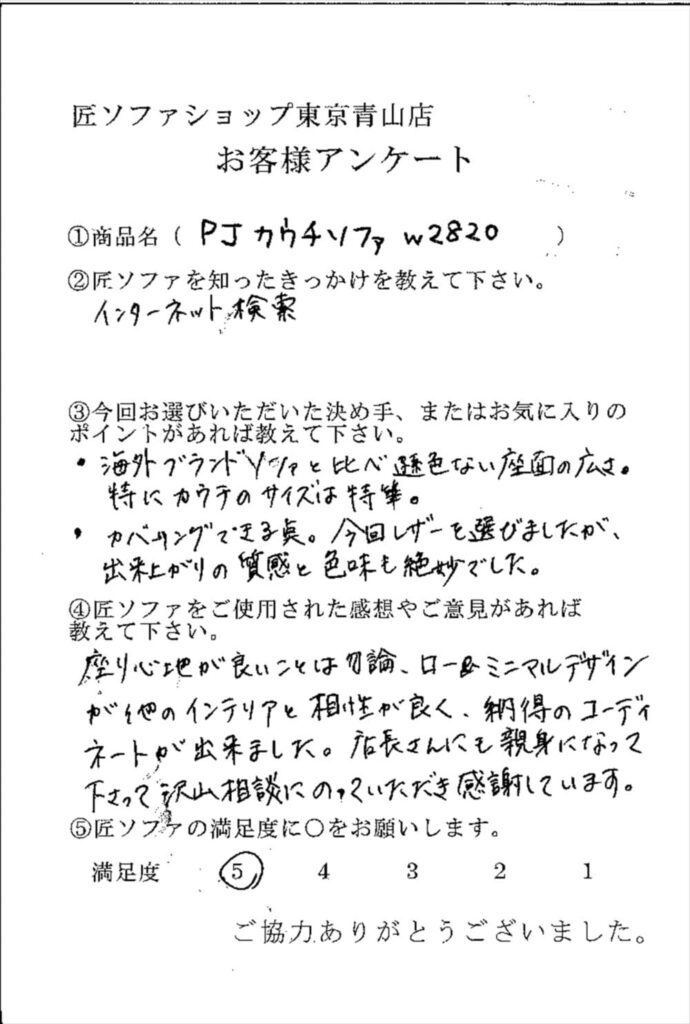 匠ソファショップ東京青山店
お客様アンケート
①商品名（ PJカウチソファ W2820 ）
②匠ソファを知ったきっかけを教えて下さい。
インターネット検索
③今回お選びいただいた決め手、またはお気に入りの
ポイントがあれば教えて下さい。
・海外ブランドソファと比べ遜色ない座面の広さ。
特にカウチのサイズは特筆。
・カバーリングできる点。今回レザーを選びましたが、
出来上がりの質感と色味も絶妙でした。
④匠ソファをご使用された感想やご意見があれば
教えて下さい。
座り心地が良いことは勿論、ロー&ミニマルデザイン
が他のインテリアと相性が良く、納得のコーディ
ネートが出来ました。店長さんにも親身になって
下さって沢山相談にのっていただき感謝しています。
⑤匠ソファの満足度に○をお願いします。
満足度 5 4 3 2 1
ご協力ありがとうございました。